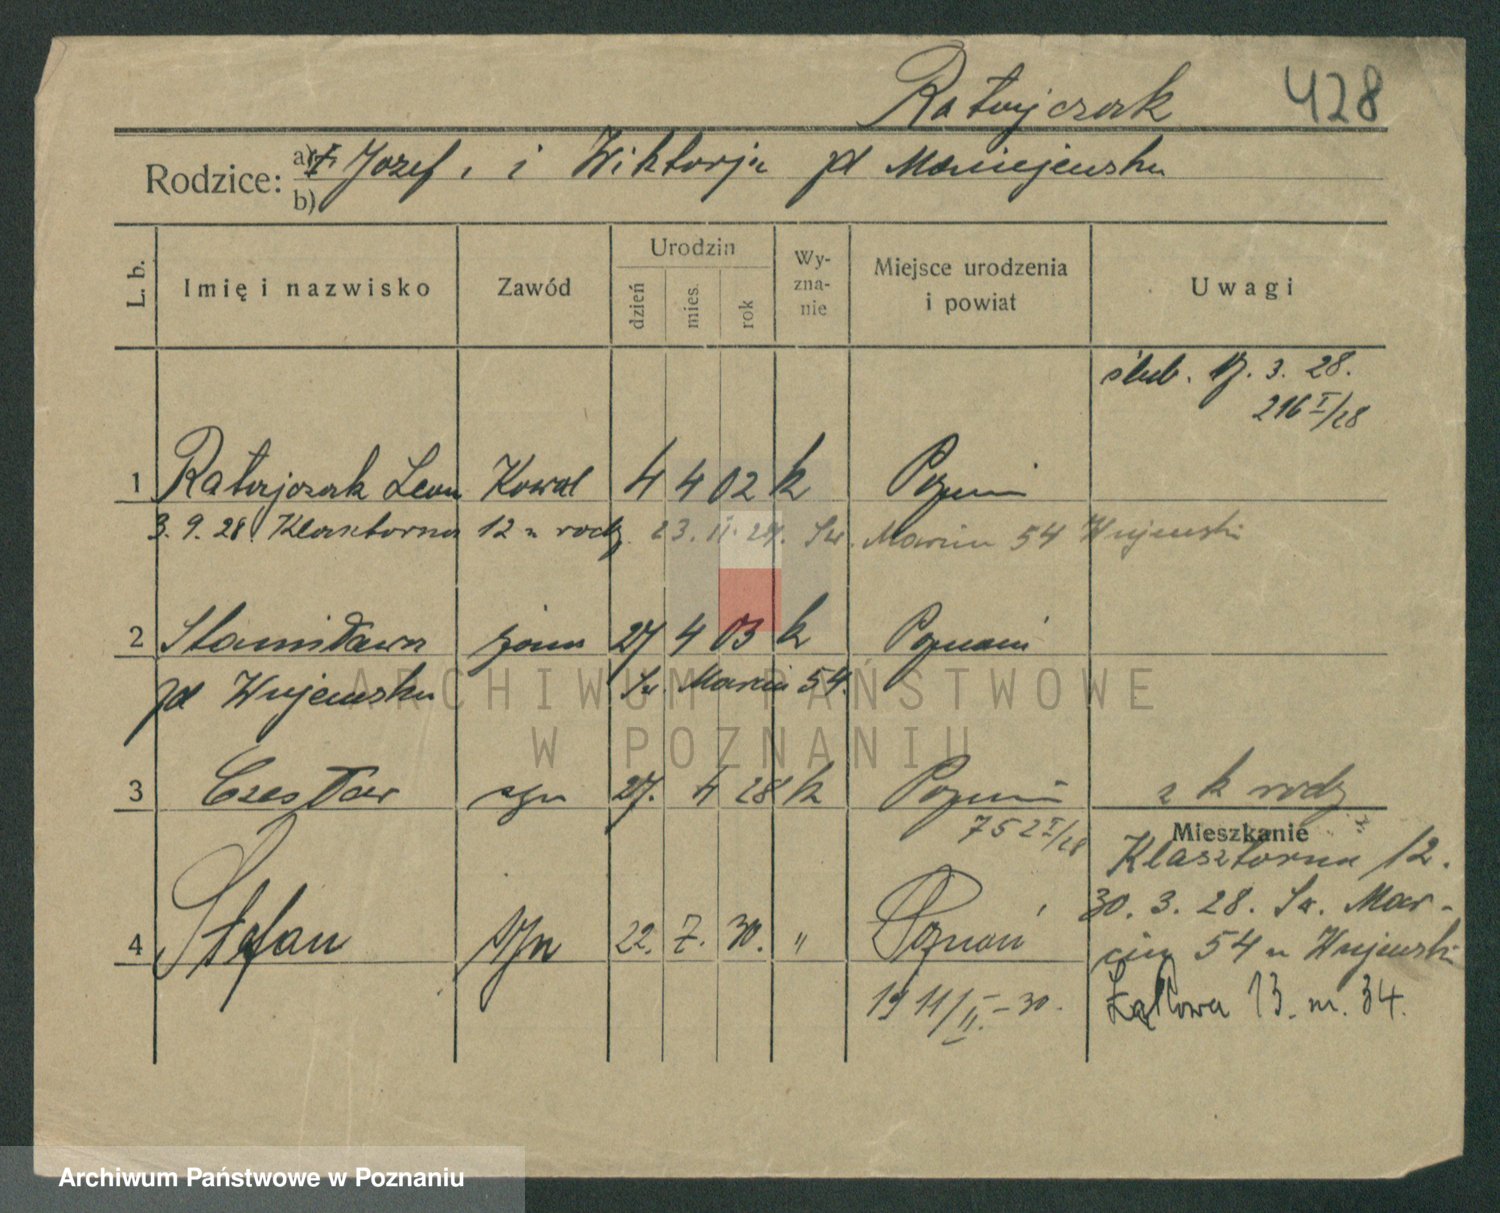 Ratajczak 428
Rodzice: a) Jozef, i Wiktorja zd Maciejewska
b)
L. b. Imię i nazwisko Zawód Urodzin dzień mies. rok Wyznanie Miejsce urodzenia i powiat Uwagi
ślub. 17. 3. 28.
216 I/28
1 Ratajczak Leon Kowal 4 4 02 k Poznań
3. 9. 28. Klasztorna 12 u rodz. 23. 11. 27. Św. Marcin 54 Wujewski
2 Stanisława żona 27 4 03 k Poznań
zd Wujewska Św. Marcin 54.
3 Czesław syn 27. 4 28 k Poznań z k rodz
752 I/28 Mieszkanie
Klasztorna 12.
30. 3. 28. Św. Mar-
4 Stefan syn 22. 7. 30. " Poznań
cin 54 u Wujewski
1911/II.-30.
Łąkowa 13. m. 34.
ARCHIWUM PAŃSTWOWE
W POZNANIU
Archiwum Państwowe w Poznaniu